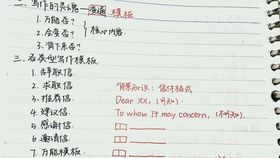 二.写作的灵魂——普通模板
1.万能否?
2.会复否?
3.背下来否?
核心内容
三.各类型写作模板
1.辞职信
2.求职信
3.推荐信
4.建议信
5.感谢信
6.邀请信
7.万能模板
背景知识:信件格式
Dear XX, (可知)
To whom It may concern, (不可知).